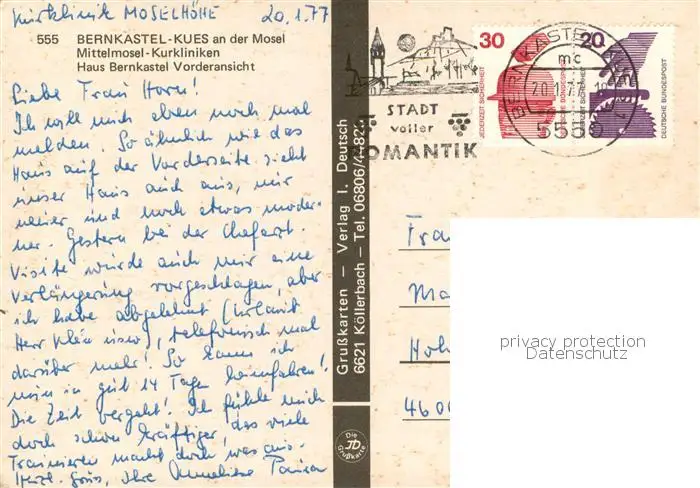 Kurklinik MOSELHÖHE 20.1.77
555 BERNKASTEL-KUES an der Mosel
Mittelmosel-Kurkliniken
Haus Bernkastel Vorderansicht
Liebe Frau Horn!
Ich will mich eben noch mal
melden. So ähnlich wie das
Haus auf der Vorderseite sieht
unser Haus auch aus, nur
neuer und noch etwas moder-
ner. Gestern bei der Chefarzt-
Visite wurde auch mir eine
Verlängerung vorgeschlagen, aber
ich habe abgelehnt (Urlaub
Herr usw), telefonisch mal
darüber mehr! So kann ich
nun in gut 14 Tagen heimfahren!
Die Zeit vergeht! Ich fühle mich
doch schon kräftiger, das viele
Trainieren macht doch was aus.
Herzl. Grüße, Ihre Anneliese
Grußkarten — Verlag I. Deutsch
6621 Köllerbach — Tel. 06806/44824
Die
JD
Grußkarte
STADT
voller
ROMANTIK
30
JEDERZEIT SICHERHEIT
DEUTSCHE BUNDESPOST
20
JEDERZEIT SICHERHEIT
DEUTSCHE BUNDESPOST
BERNKASTEL-KUES 1
mc
20.1.77
5550
Frau
Ma
Hol
460
privacy protection
Datenschutz